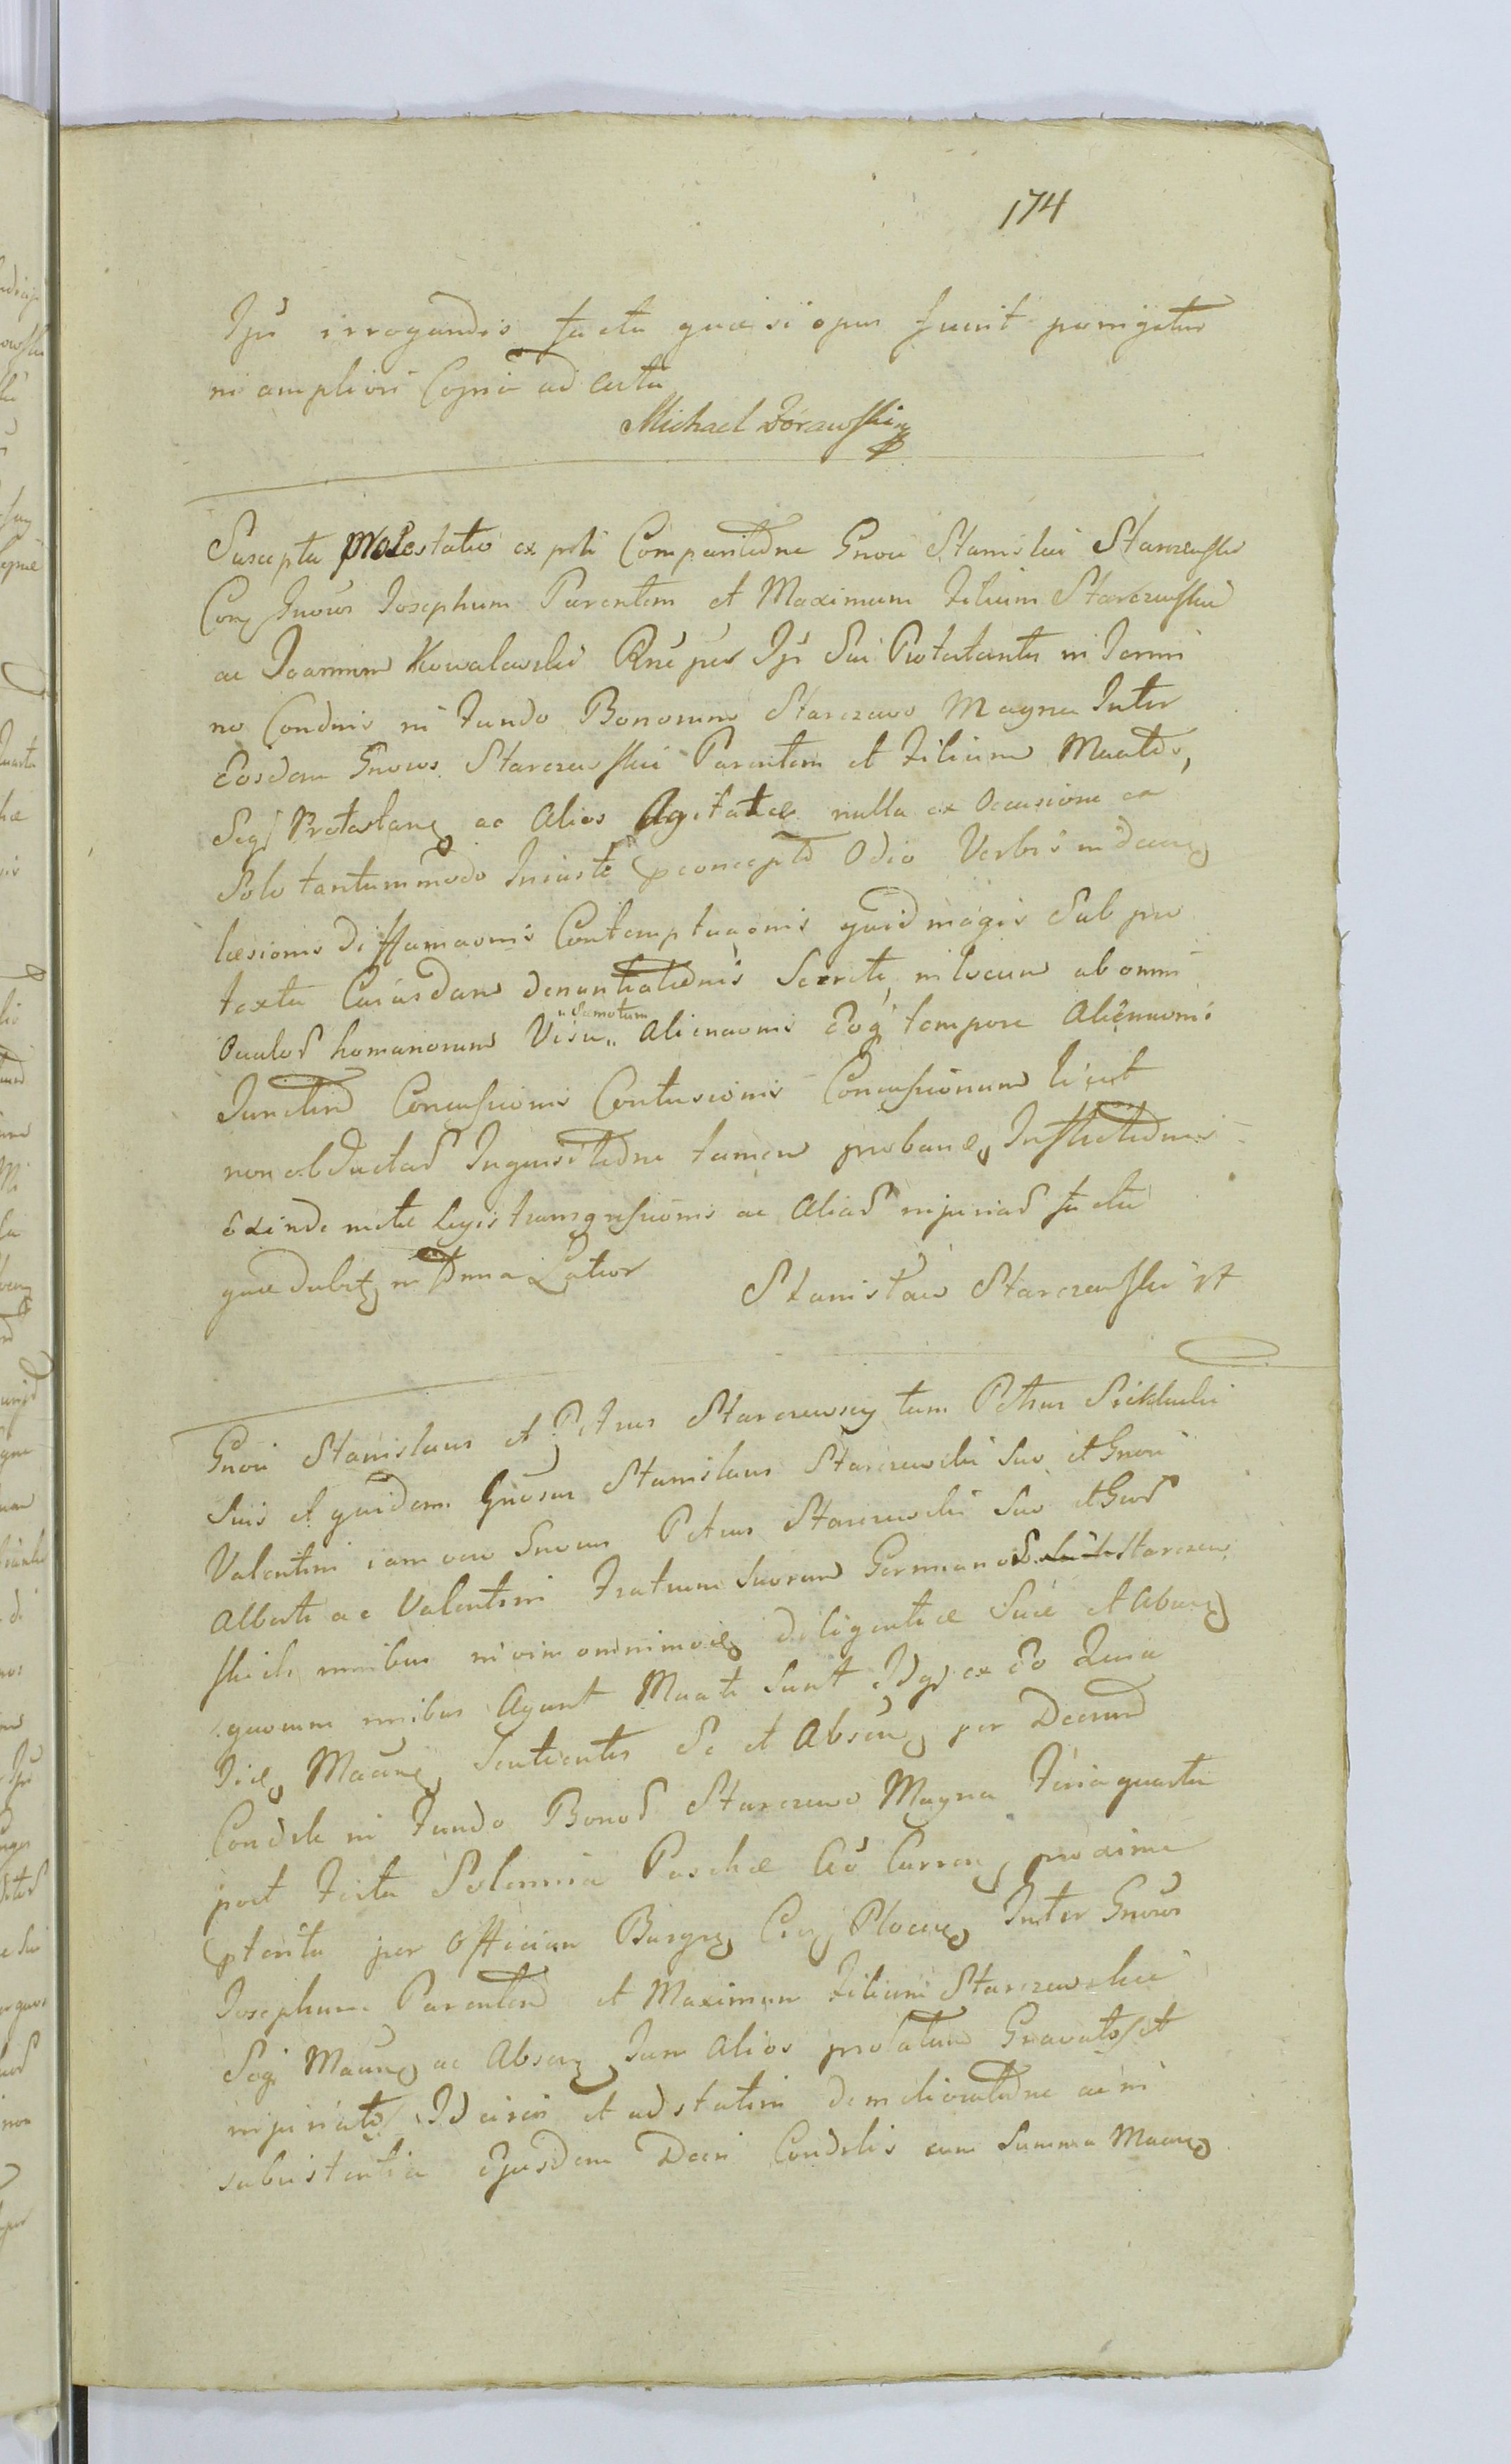 174
Ipŭ irrogandis facta quae si opus fuerit porrigetur
in ampliori Copia ad acta
Michael Żórawski
Suscepta Protestatio ex psti Comparitōne Gnosi Stanislai Starzewski
Con Gnosos Josephum Parentem et Maximum Filium Starczewskie
ac Joannem Kowalewski Rne per Ips Sui Protestantis in Termi
no Condnis in Fundo Bonorum Starczewo Magna Inter
Eosdem Gnosos Starczewskie Parentem et Filium Mnatos,
Seq Protestan ac Alios Agitatae nulla ex Occasione ex
Solo tantummodo Iniuste pconcepto Odio Verbis indecen
laesionis Diffamaonis Contemptuaonis quid magis Sub prae
textu Cuiusdam denuntiatiōnis Secrete in locum ab omni
Oculor homanorum Visu „ Semotum „ Alienaonis Eoq tempore Alienaoni
Junctim Concussionis Contusionis Concussionum licet
non obductar Inquisitiōne tamen proban Inflictiōnis
Exinde metae Legis transgressionis ac Aliar injuriar facta
quae dabit in Dma Latior
Stanisław Starczewski
Gnosi Stanislaus et Petrus Starczewscy tum Petrus Siekłucki
Suis et quidem Gnosus Stanislaus Starczewski Suo et Gnosi
Valentini iam vero Gnosus Petrus Starczewski Suo et Gnor
Alberti ac Valentini Fratrum Suorum Germanor Starczew
skich nnibus in vim omnimodae diligentiae Suae et Absen
quorum nnibus Agunt Mnati Sunt Idq ex Eo Quia
Iidem Manen Sentientes Se et Absen per Decrum
Condnle in Fundo Bonor Starczewo Magna Feria quarta
post Festa Solennia Paschae Ao Curren proxime
pterita per Officium Burgre Cas Plocen Inter Gnosos
Josephum Parentem et Maximum Filium Starczewskie
Seq Manen ac Absen Tum Alios prolatum Gravatos et
injuriatos Idcirco et ad statim demelioratiōne ac in
subsistentia Ejusdem Decri Condnlis cum Summa Manen